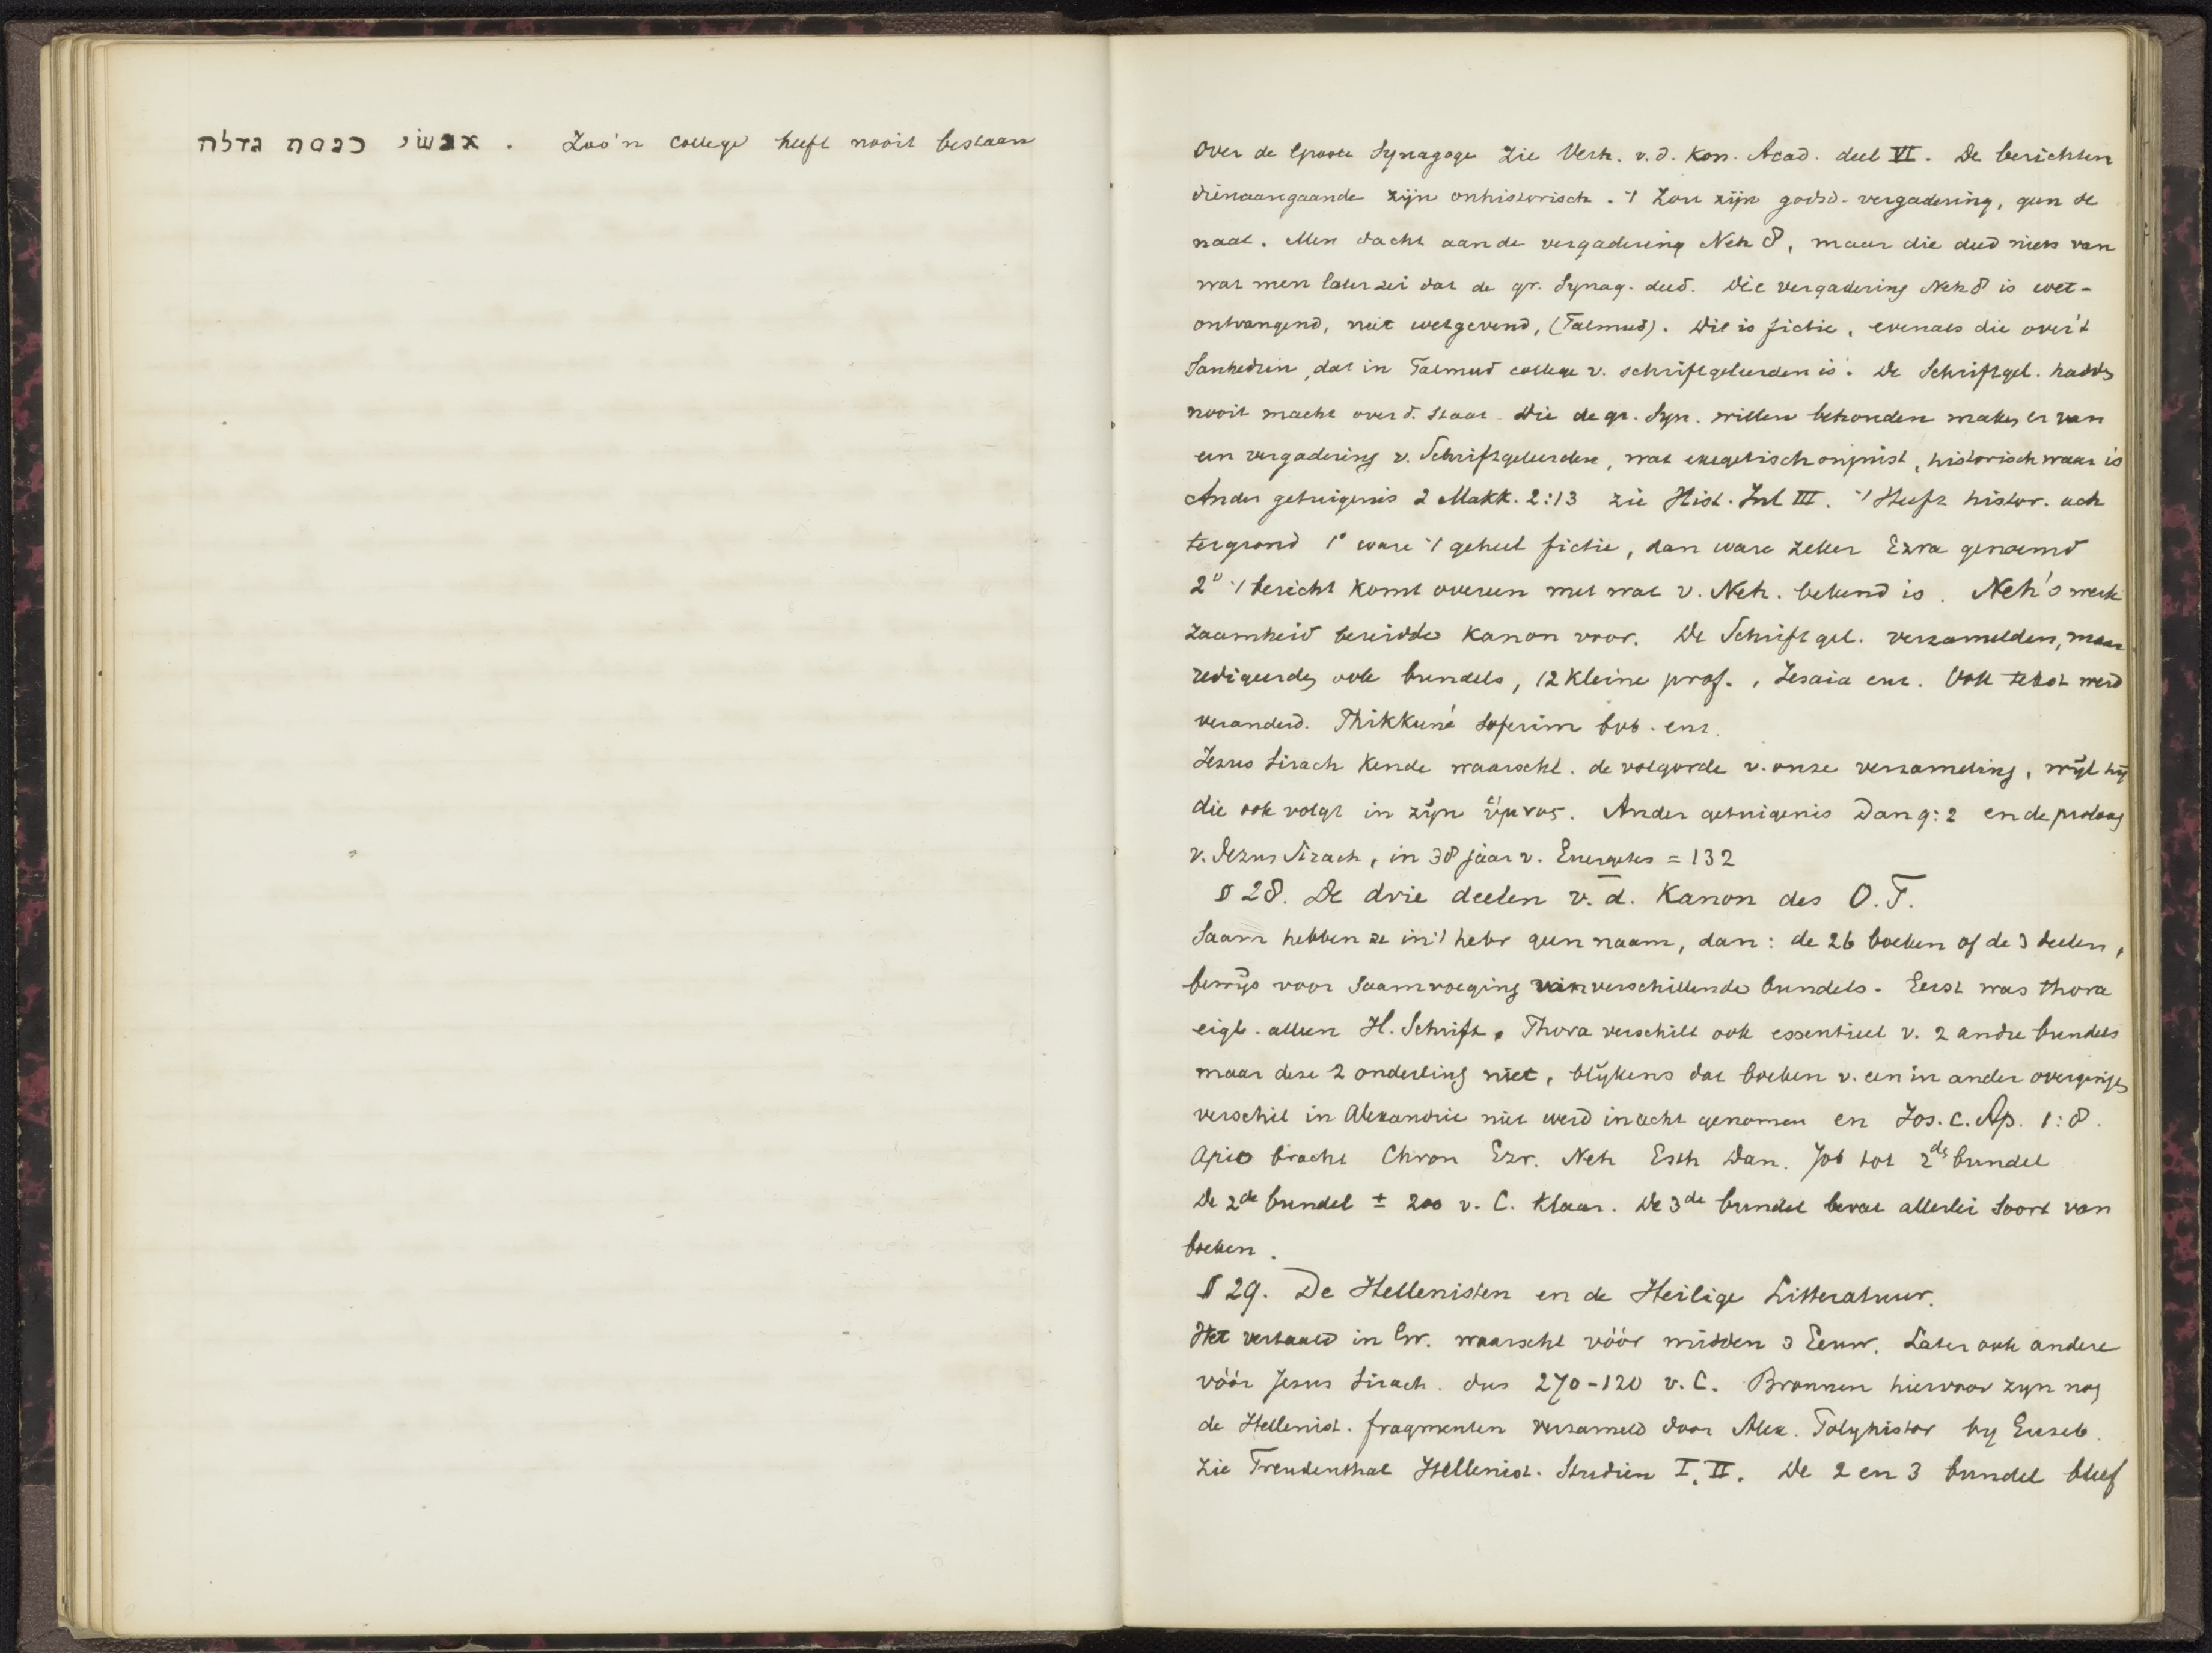 אנשי כנסת גדלה . Zoo'n college heeft nooit bestaan
Over de Groote Synagoge zie Verh. v. d. Kon. Acad. deel VI. De berichten
dienaangaande zijn onhistorisch. 't Zou zijn godsd-vergadering, geen se
naat. Men dacht aan de vergadering Neh 8, maar die deed niets van
wat men later zei dat de gr. Synag. deed. Die vergadering Neh 8 is wet-
ontvangend, niet wetgevend, (Talmud). Dit is fictie, evenals die over 't
Sanhedrin, dat in Talmud college v. schriftgeleerden is. De Schriftgel. hadden
nooit macht over d. Staat. Die de gr. Syn. willen behouden maken er van
een vergadering v. Schriftgeleerden, wat exegetisch onjuist, historisch waar is
Ander getuigenis 2 Makk. 2:13 zie Hist. Inl III. 't Heeft histor. ach
tergrond 1° ware 't geheel fictie, dan ware zeker Ezra genoemd
2° 't bericht komt overeen met wat v. Neh. bekend is. Neh's werk
zaamheid bereidde kanon voor. De Schriftgel. verzamelden, maar
redigeerden ook bundels, 12 kleine prof., Jesaia enz. Ook tekst werd
veranderd. Thikkuné Soferim bvb. enz.
Jezus Sirach kende waarschl. de volgorde v. onze verzameling, wijl hij
die ook volgt in zijn ὕμνος. Ander getuigenis Dan 9:2 en de proloog
v. Jezus Sirach, in 38 jaar v. Euergetes = 132
§ 28. De drie deelen v. d. Kanon des O.T.
Saam hebben ze in 't hebr geen naam, dan: de 26 boeken of de 3 deelen,
bewijs voor saamvoeging van verschillende bundels. Eerst was thora
eigl. alleen H. Schrift. Thora verschilt ook essentieel v. 2 andre bundels
maar deze 2 onderling niet, blijkens dat boeken v. een in ander overgingen
verschil in Alexandrie niet werd in acht genomen en Jos. c. Ap. 1:8.
Apio bracht Chron Ezr. Neh Esth Dan. Job tot 2de bundel
De 2de bundel ± 200 v. C. klaar. De 3de bundel bevat allerlei soort van
boeken.
§ 29. De Hellenisten en de Heilige Litteratuur.
Wet vertaald in Gr. waarschl vóór midden 3 Eeuw. Later ook andere
vóór Jesus Sirach. dus 270-120 v. C. Bronnen hiervoor zijn nog
de Hellenist. fragmenten verzameld door Alex. Polyhistor by Euseb.
zie Freudenthal Hellenist. Studien I, II. De 2 en 3 bundel bleef